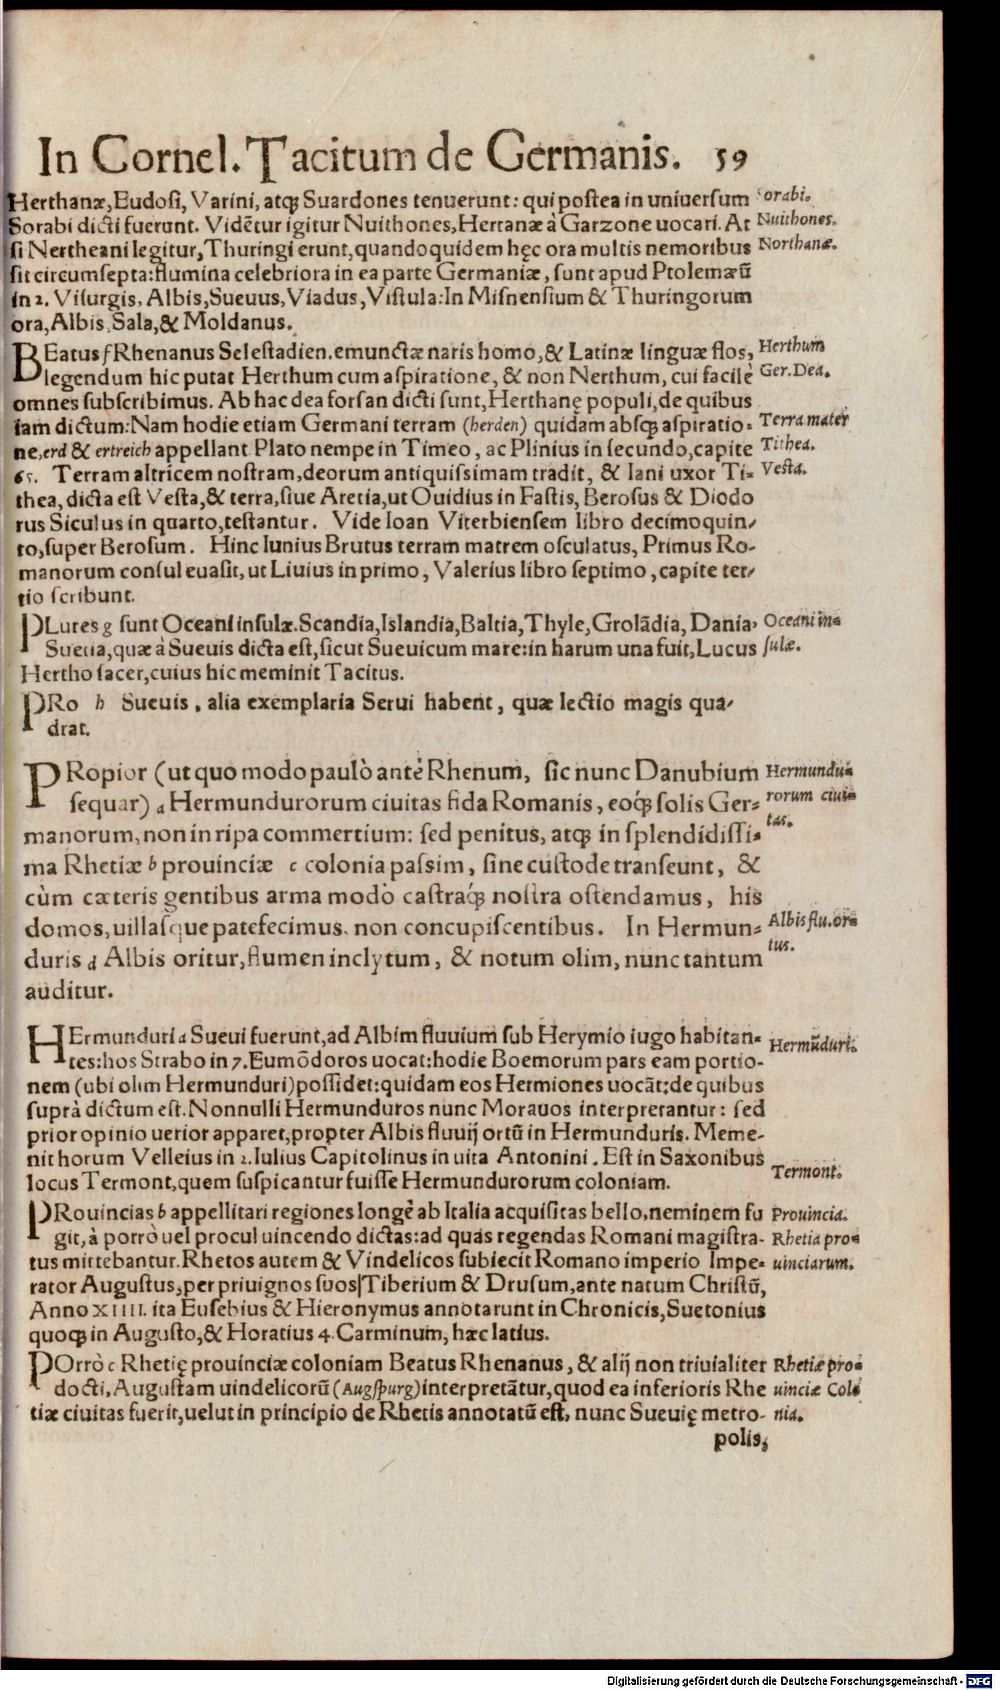 In Cornel. Tacitum de Germanis. 59
Herthanæ, Eudosi, Varini, atqꝫ Suardones tenuerunt: qui postea in universum
Sorabi dicti fuerunt. Vidẽtur igitur Nuithones, Hertanæ à Garzone uocari. At
si Nertheani legitur, Thuringi erunt, quandoquidem hęc ora multis nemoribus
sit circumsepta: flumina celebriora in ea parte Germaniæ, sunt apud Ptolemæũ
in 2. Visurgis, Albis, Sueuus, Viadus, Vistula: In Misnensium & Thuringorum
ora, Albis, Sala, & Moldanus.
orabi.
Nuithones.
Northanæ.
BEatus f Rhenanus Selestadien. emunctæ naris homo, & Latinæ linguæ flos,
legendum hic putat Herthum cum aspiratione, & non Nerthum, cui facilè
omnes subscribimus. Ab hac dea forsan dicti sunt, Herthanę populi, de quibus
iam dictum: Nam hodie etiam Germani terram (herden) quidam absqꝫ aspiratio-
ne, erd & ertreich appellant Plato nempe in Timeo, ac Plinius in secundo, capite
65. Terram altricem nostram, deorum antiquissimam tradit, & Iani uxor Ti-
thea, dicta est Vesta, & terra, siue Aretia, ut Ouidius in Fastis, Berosus & Diodo
rus Siculus in quarto, testantur. Vide Ioan Viterbiensem libro decimoquin-
to, super Berosum. Hinc Iunius Brutus terram matrem osculatus, Primus Ro-
manorum consul euasit, ut Liuius in primo, Valerius libro septimo, capite ter-
tio scribunt.
Herthum
Ger. Dea.
Terra mater
Tithea.
Vesta.
PLures g sunt Oceani insulæ. Scandia, Islandia, Baltia, Thyle, Grolãdia, Dania,
Sueuia, quæ à Sueuis dicta est, sicut Sueuicum mare: in harum una fuit, Lucus
Hertho sacer, cuius hic meminit Tacitus.
Oceani in-
sulæ.
PRo h Sueuis, alia exemplaria Serui habent, quæ lectio magis qua-
drat.
PRopior (ut quo modo paulò antè Rhenum, sic nunc Danubium
sequar) a Hermundurorum ciuitas fida Romanis, eoqꝫ́ solis Ger-
manorum, non in ripa commertium: sed penitus, atqꝫ in splendidissi-
ma Rhetiæ b prouinciæ c colonia passim, sine custode transeunt, &
cùm cæteris gentibus arma modò castraqꝫ́ nostra ostendamus, his
domos, uillasque patefecimus. non concupiscentibus. In Hermun-
duris d Albis oritur, flumen inclytum, & notum olim, nunc tantum
auditur.
Hermundu-
rorum ciui-
tas.
Albis flu. or-
tus.
HErmunduri a Sueui fuerunt, ad Albim fluuium sub Herymio iugo habitan-
tes: hos Strabo in 7. Eumõdoros uocat: hodie Boemorum pars eam portio-
nem (ubi olim Hermunduri) possidet: quidam eos Hermiones uocãt: de quibus
suprà dictum est. Nonnulli Hermunduros nunc Morauos interpretantur: sed
prior opinio uerior apparet, propter Albis fluuij ortũ in Hermunduris. Meme-
nit horum Velleius in 2. Iulius Capitolinus in uita Antonini. Est in Saxonibus
locus Termont, quem suspicantur fuisse Hermundurorum coloniam.
Hermũduri.
Termont.
PRouincias b appellitari regiones longè ab Italia acquisitas bello, neminem fu
git, à porrò uel procul uincendo dictas: ad quas regendas Romani magistra-
tus mittebantur. Rhetos autem & Vindelicos subiecit Romano imperio Impe-
rator Augustus, per priuignos suos Tiberium & Drusum, ante natum Christũ,
Anno XIIII. ita Eusebius & Hieronymus annotarunt in Chronicis, Suetonius
quoqꝫ in Augusto, & Horatius 4. Carminum, hæc latius.
Prouincia.
Rhetia pro-
uinciarum.
POrrò c Rhetię prouinciæ coloniam Beatus Rhenanus, & alij non triuialiter
docti, Augustam uindelicorũ (Augspurg) interpretãtur, quod ea inferioris Rhe
tiæ ciuitas fuerit, uelut in principio de Rhetis annotatũ est, nunc Sueuię metro-
polis,
Rhetiæ pro-
uinciæ Colo
nia.
Digitalisierung gefördert durch die Deutsche Forschungsgemeinschaft - DFG